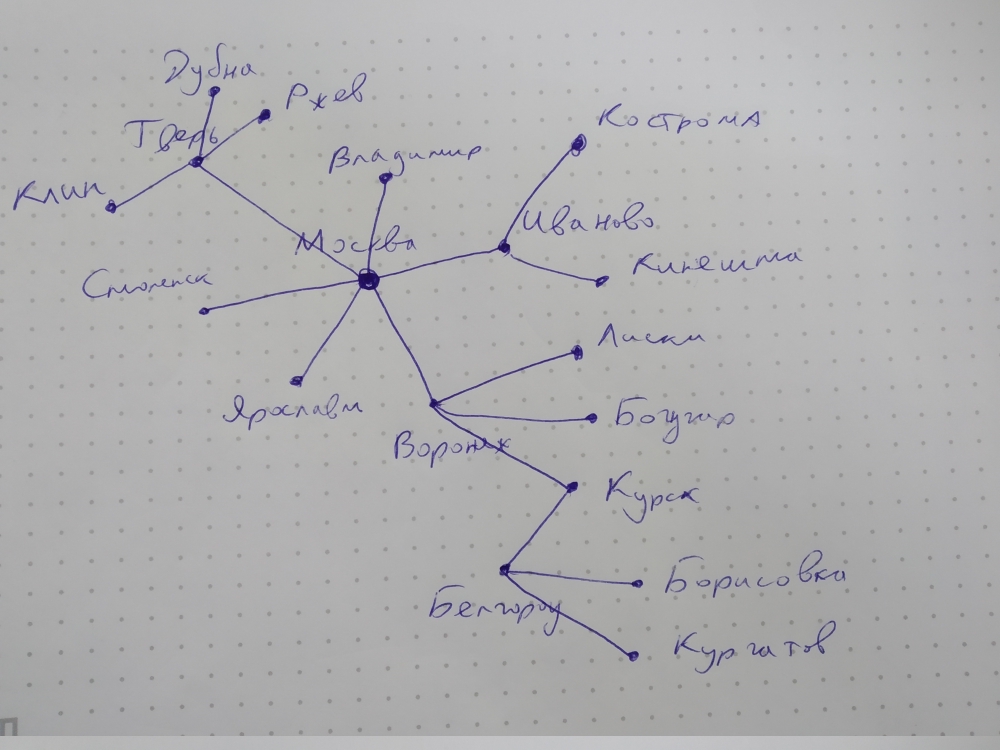 Дубна
Ржев
Тверь
Клин
Владимир
Кострома
Москва
Иваново
Смоленск
Кинешма
Лиски
Ярославл
Богучар
Воронеж
Курск
Борисовка
Белгород
Курчатов